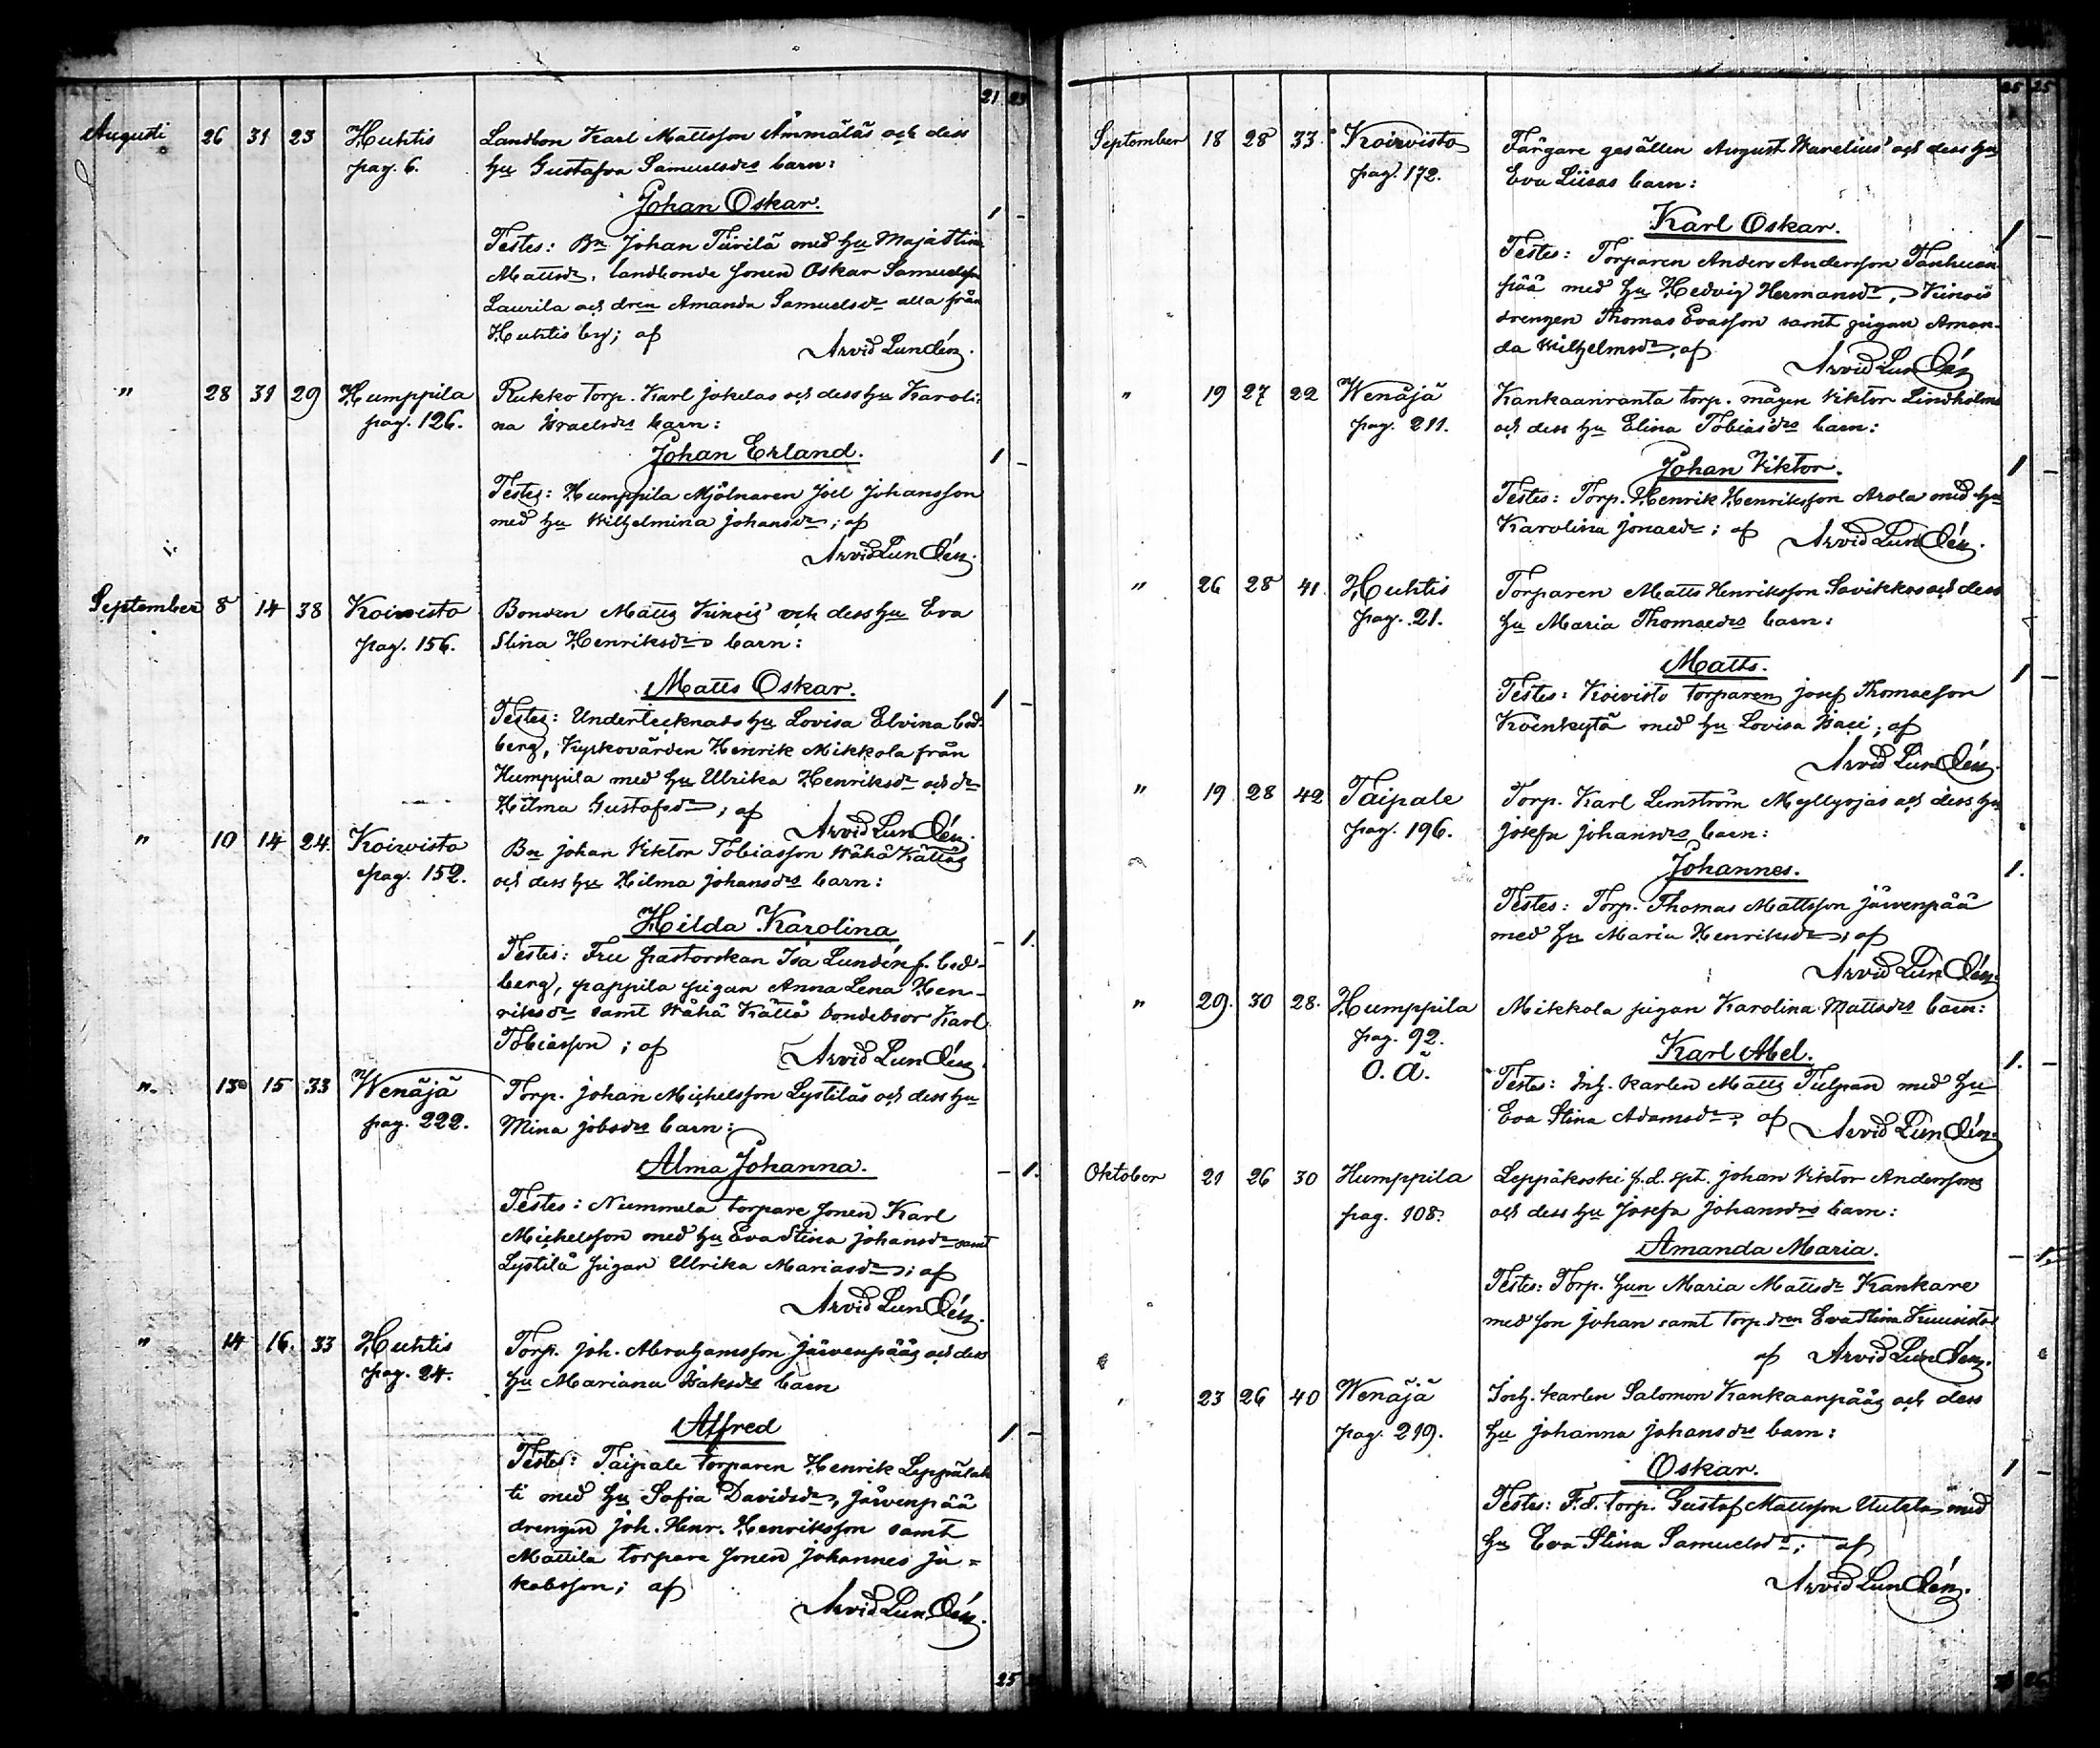 21 23
Augusti 26 31 23 Huhtis Landbon Karl Mattsson Ämmäläs och dess
pag. 6. hu Gustafva Samuelsdrs barn:
Johan Oskar. 1 -
Testes: Bn Johan Tiirilä med hu Maja Stina
Mattsdr, landbonde sonen Oskar Samuelsson
Laurila och dren Amanda Samuelsdr alla från
Huhtis by; af
Arvid Lundén.
" 28 31 29 Humppila Rukko torp. Karl Jokelas och dess hu Karoli-
pag. 126. na Israelsdrs barn:
Johan Erland. 1 -
Testes: Humppila Mjölnaren Joel Johansson
med hu Wilhelmina Johansdr; af
Arvid Lundén.
September 8 14 38 Koivisto Bonden Matts Kinois' och dess hu Eva
pag. 156. Stina Henriksdrs barn:
Matts Oskar. 1 -
Testes: Undertecknads hu Lovisa Elvina Ced-
berg, Kyrkovärden Henrik Mikkola från
Humppila med hu Ulrika Henriksdr och dr
Hilma Gustafsdr; af
Arvid Lundén.
" 10 14 24. Koivisto Bn Johan Viktor Tobiasson Wähä Kättäs
pag. 152. och dess hu Hilma Johansdrs barn:
Hilda Karolina - 1.
Testes: Fru pastorskan Isa Lundén f. Ced-
berg, pappila pigan Anna Lena Hen-
riksdr samt Wähä Kättä bondebror Karl
Tobiasson; af
Arvid Lundén.
". 13 15 33 Wenäjä Torp. Johan Michelsson Lystiläs och dess hu
pag. 222. Mina Jobsdrs barn:
Alma Johanna. - 1.
Testes: Nummela torpare sonen Karl
Michelsson med hu Eva Stina Johansdr samt
Lystilä pigan Ulrika Mariasdr; af
Arvid Lundén.
" 14 16. 33 Huhtis Torp. Joh. Abrahamsson Järvenpääs och dess
pag. 24. hu Mariana Isaksdrs barn
Alfred 1 -
Testes: Taipale torparen Henrik Leppälah-
ti med hu Sofia Davidsdr, Järvenpää
drengen Joh. Henr. Henriksson samt
Mattila torpare sonen Johannes Ja-
kobsson; af
Arvid Lundén.
25
25 25
September 18 28 33. Koivisto Färgare gesällen August Warelius' och dess hu
pag. 172. Eva Liisas barn:
Karl Oskar. 1 -
Testes: Torparen Anders Andersson Tanhuan-
pää med hu Hedvig Hermansdr, Kinois
drengen Thomas Evasson samt pigan Aman-
da Wilhelmsdr; af
Arvid Lundén
" 19 27 22 Wenäjä Kankaanranta torp. mågen Viktor Lindholms
pag. 211. och dess hu Elina Tobiasdrs barn:
Johan Viktor. 1 -
Testes: Torp. Henrik Henriksson Arola med hu
Karolina Jonaedr; af Arvid Lundén.
" 26 28 41 Huhtis Torparen Matts Henriksson Savikkos och dess
pag. 21. hu Maria Thomaedrs barn:
Matts. 1 -
Testes: Koivisto torparen Josef Thomaesson
Koinkytä med hu Lovisa Isaci; af
Arvid Lundén.
" 19 28 42 Taipale Torp. Karl Lemström Myllyojas och dess hu
pag. 196. Josefa Johansdrs barn:
Johannes. 1.
Testes: Torp. Thomas Mattsson Järvenpää
med hu Maria Henriksdr; af
Arvid Lundén.
" 29. 30 28. Humppila Mikkola pigan Karolina Mattsdrs barn:
pag. 92. Karl Abel. 1. -
O. Ä. Testes: Inh. karlen Matts Tulpan med hu
Eva Stina Adamsdr; af Arvid Lundén.
Oktober 21 26 30 Humppila Leppäkoski f.d. spt. Johan Viktor Anderssons
pag. 108. och dess hu Josefa Johansdrs barn:
Amanda Maria. - 1.
Testes: Torp. hun Maria Mattsdr Kankare
med son Johan samt torp. dren Eva Stina Kuusisto
af Arvid Lundén.
" 23 26 40 Wenäjä Inh. karlen Salomon Kankaanpääs och dess
pag. 219. hu Johanna Johansdrs barn:
Oskar. 1 -
Testes: F.d. torp. Gustaf Mattsson Uutela med
hu Eva Stina Samuelsdr; af
Arvid Lundén.